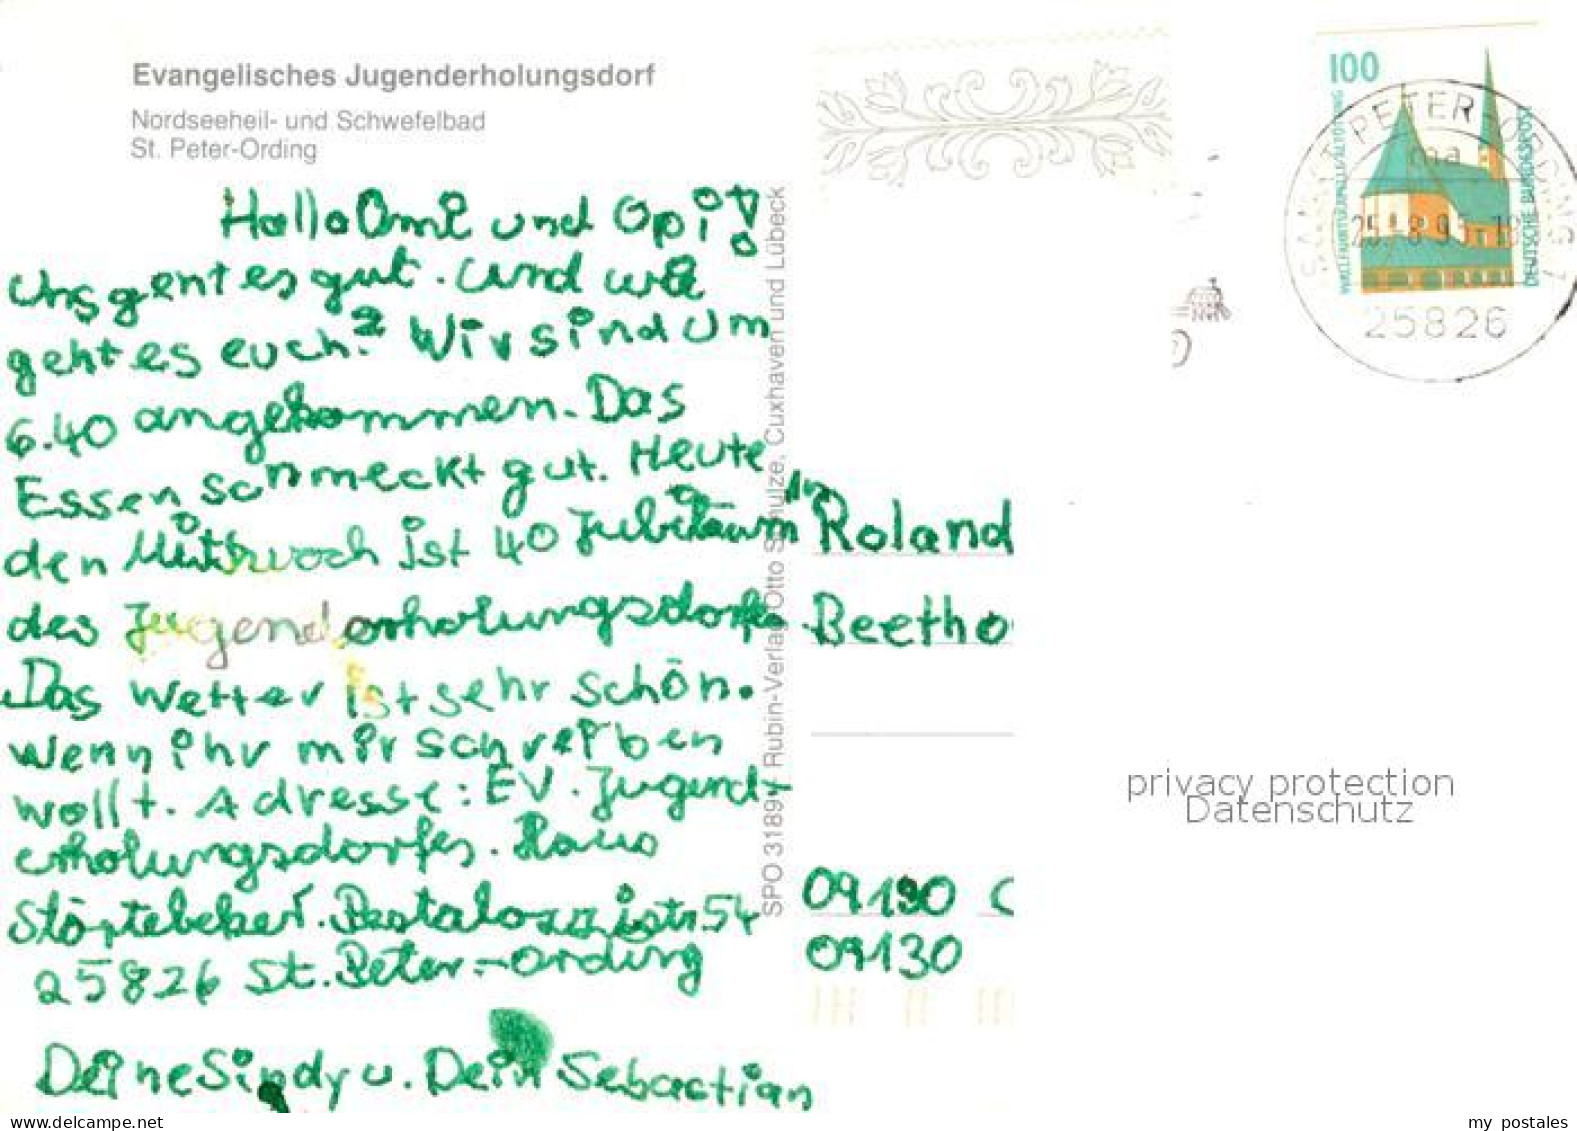 Evangelisches Jugenderholungsdorf
Nordseeheil- und Schwefelbad
St. Peter-Ording
Hallo Omi und Opi!
Uns geht es gut. Und wie
geht es euch? Wir sind um
6.40 angekommen. Das
Essen schmeckt gut. Heute
den Mittwoch ist 40 Jubiläum
des Jugenderholungsdorfs
Das Wetter ist sehr schön.
Wenn ihr mir schreiben
wollt. Adresse: EV. Jugend-
erholungsdorfes. Haus
Störtebeker. Pestalozzistr. 54
25826 St. Peter-Ording
Deine Sindy u. Dein Sebastian
SPO 3189 Rubin-Verlag Otto Schulze, Cuxhaven und Lübeck
An
Roland
Beetho
09130 C
09130
100
WALLFAHRTSKAPELLE ALTÖTTING
DEUTSCHE BUNDESPOST
SANKT PETER-ORDING 1
ma
25826
privacy protection
Datenschutz
www.delcampe.net
my postales